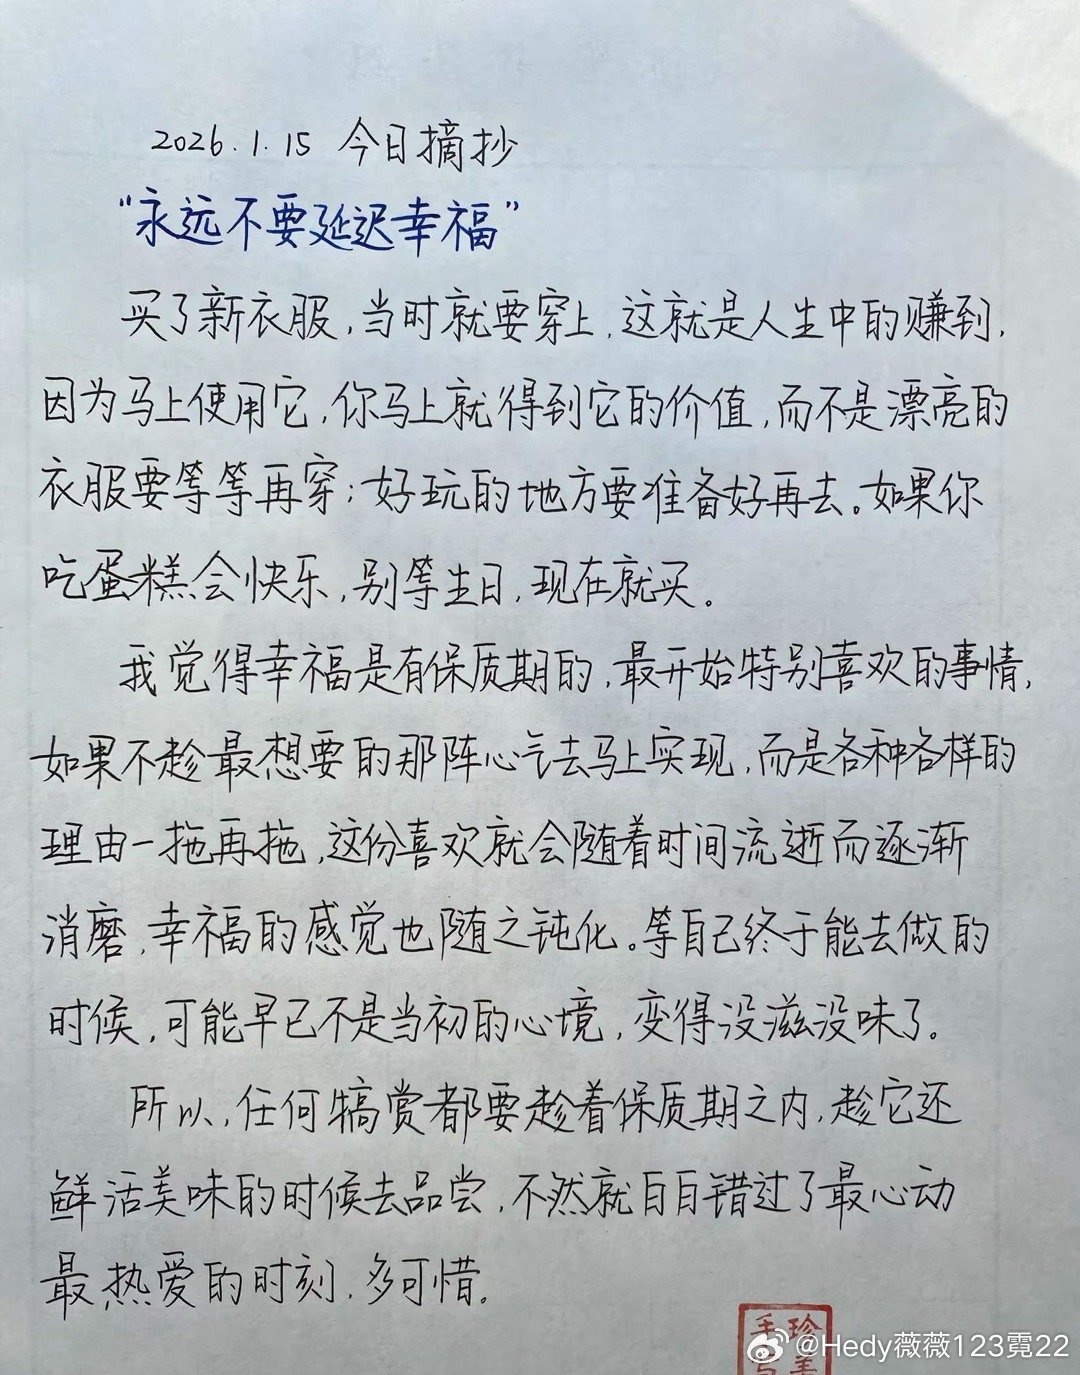 2026.1.15 今日摘抄
“永远不要延迟幸福”
买了新衣服,当时就要穿上,这就是人生中的赚到,
因为马上使用它,你马上就得到它的价值,而不是漂亮的
衣服要等等再穿;好玩的地方要准备好再去。如果你
吃蛋糕会快乐,别等生日,现在就买。
我觉得幸福是有保质期的,最开始特别喜欢的事情,
如果不趁最想要的那阵心气去马上实现,而是各种各样的
理由一拖再拖,这份喜欢就会随着时间流逝而逐渐
消磨,幸福的感觉也随之钝化。等自己终于能去做的
时候,可能早已不是当初的心境,变得没滋没味了。
所以,任何犒赏都要趁着保质期之内,趁它还
鲜活美味的时候去品尝,不然就白白错过了最心动
最热爱的时刻,多可惜。
珍美
手写
@Hedy薇薇123霓22